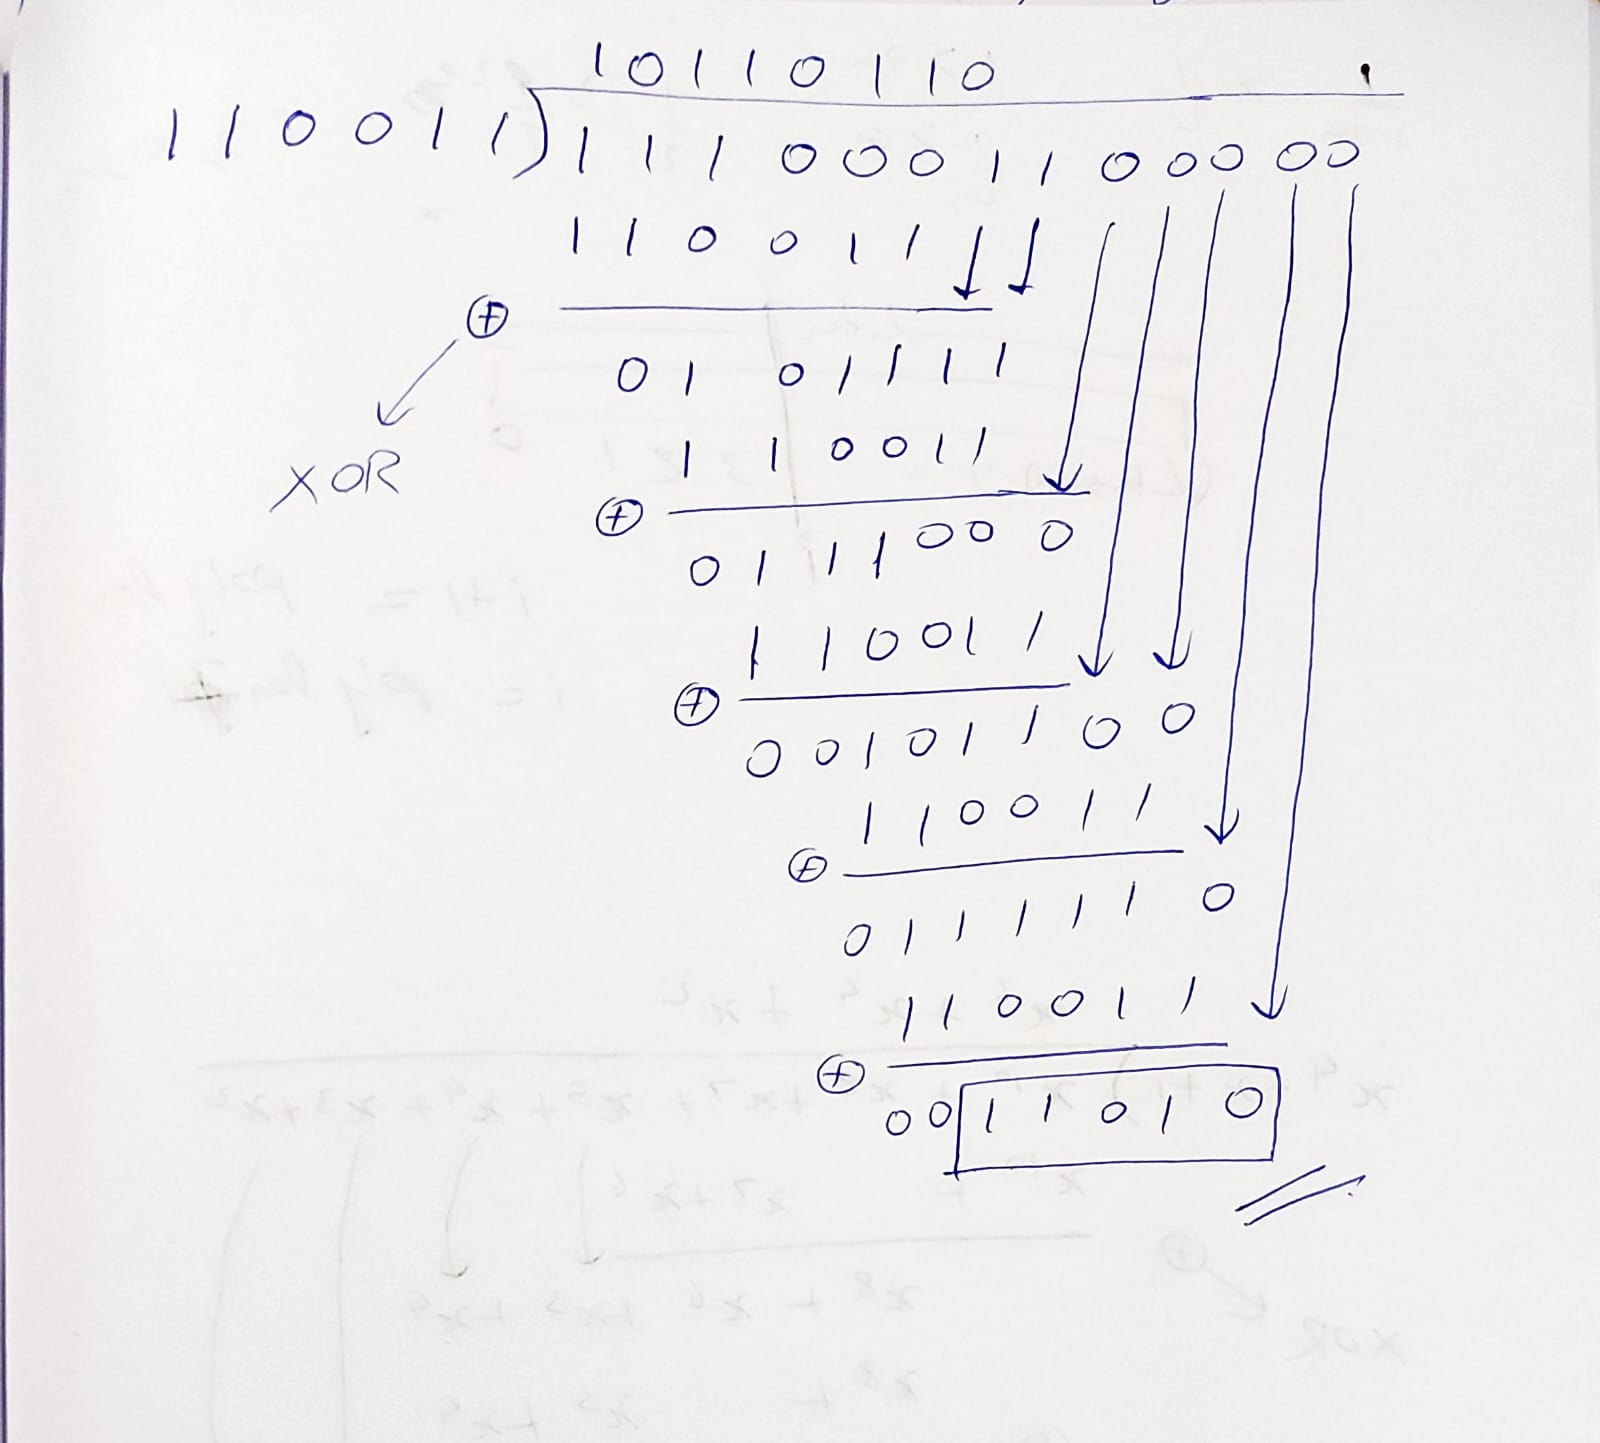 10110110
110011)1110001100000
110011
⊕
0101111
XOR
110011
⊕
0111000
110011
⊕
00101100
110011
⊕
0111110
110011
⊕
0011010